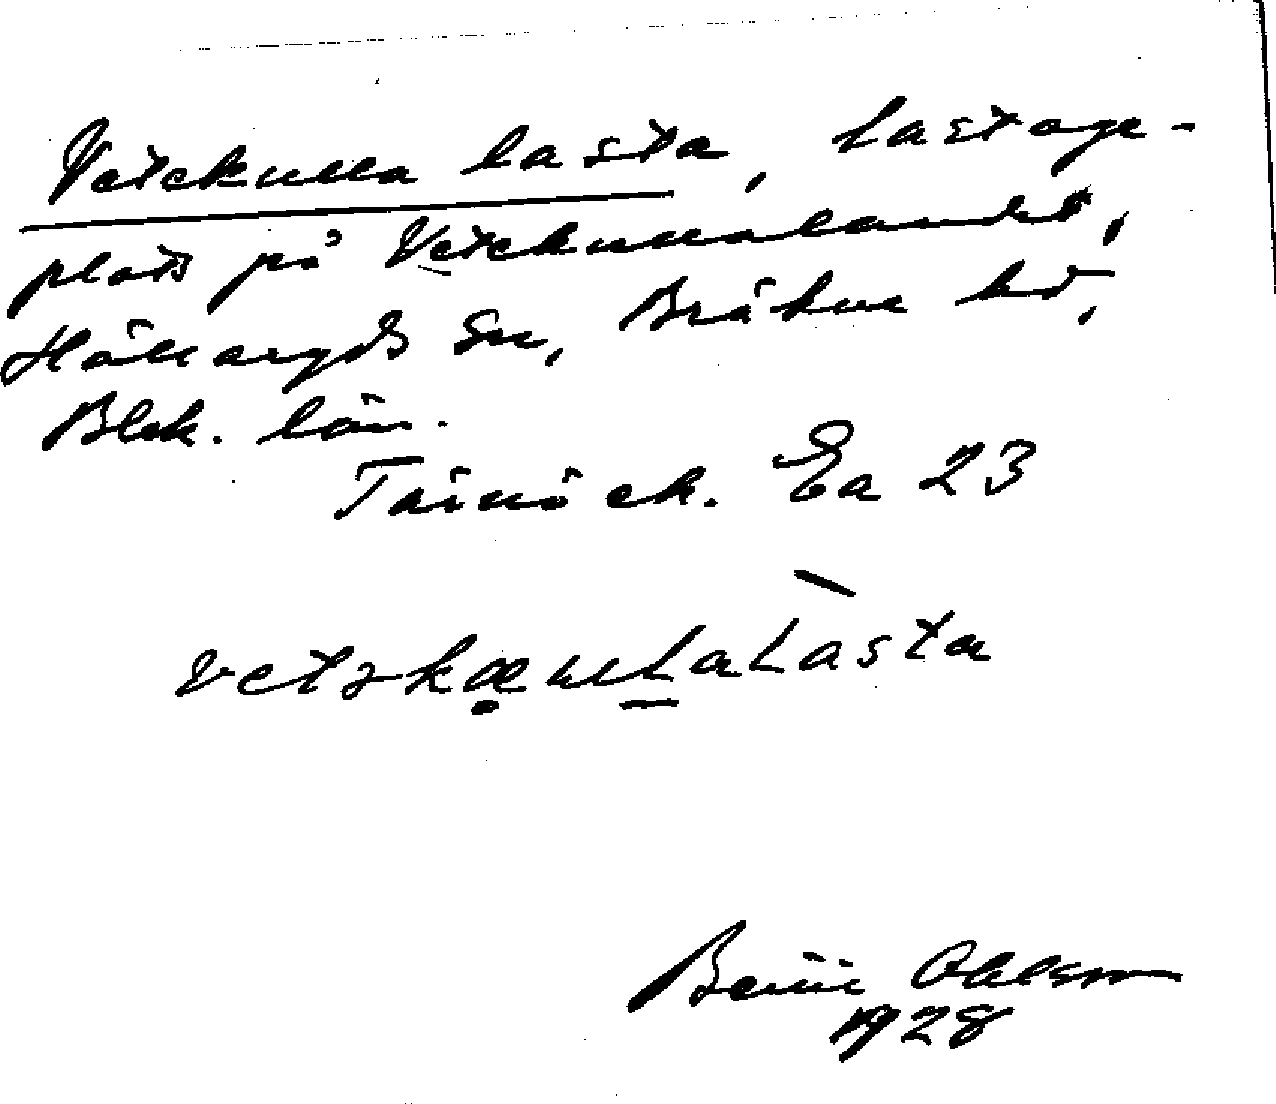 Vetekulla lasta, lastage-
plats på Vetekullalandet,
Hällaryds sn, Bräkne hd,
Blek. län.
Tärnö ek. Ea 23
vetəkæulalasta
Bertil Ohlsson
1928